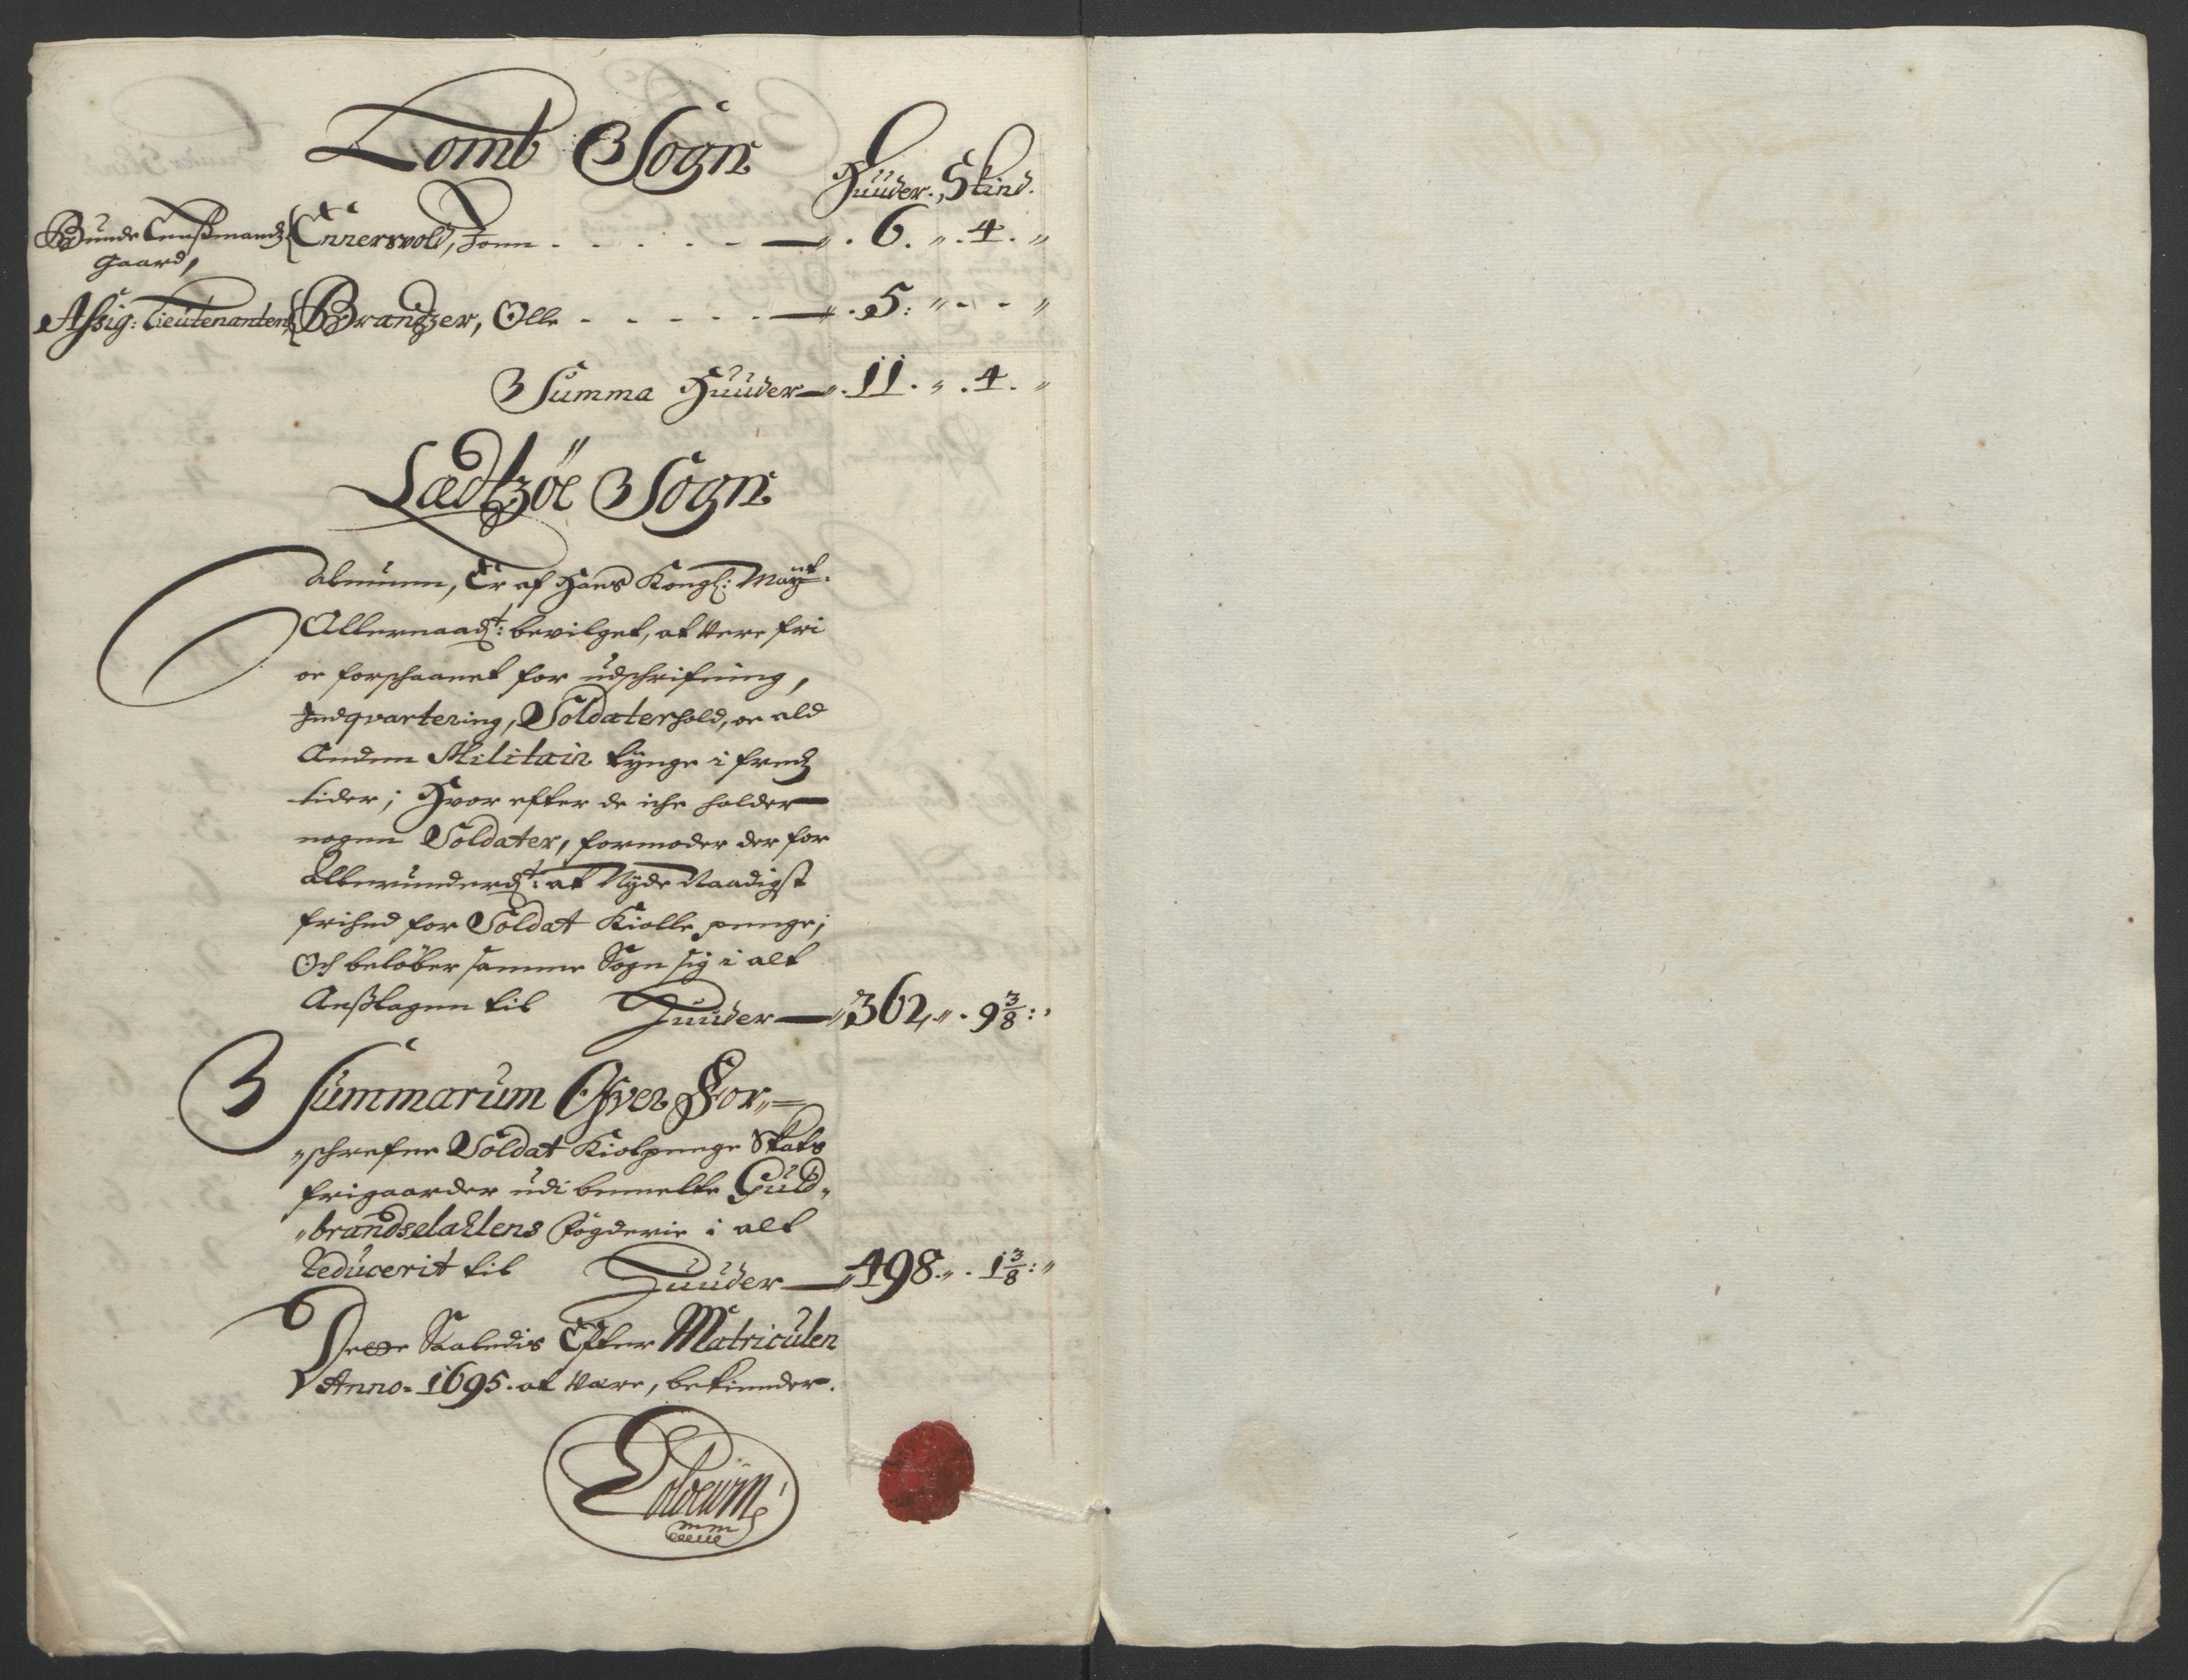 Lomb Sogn
Huuder. Skind.
Bunde Lenßmandz gaard, { Ennersvold, Jonn - - - - - — „ . 6. „ . 4. „
Assig: Lieutenanten { Brandzer, Olle - - - - - — „ . 5: „ - - „
Summa Huuder — „ . 11. „ . 4. „
Lædtzöe Sogn
Almuen, Er af Hans Kongl: Mayt.
Allernaadt: bevilget, at være fri
oc forschaanet for udschrifning,
Indqvartering, Soldaterhold, oc ald
Anden Militair tynge i fredz
tider; Hvor efter de iche holder
nogen Soldater, formoder der for
Allerunderdt: at Nyde Naadigst
frihed for Soldat Kiolle penge;
Och beløber samme Sogn sig i alt
Anslagen til Huuder — „ 362 „ . 9 3/8 : „
Summarum Ofver For„=
„schrefne Soldat Kiolpenge Skats
frigaarder udi bemelte Guld„
„brandsdahlens fögderie i alt
Reducerit til Huuder — „ 498. „ . 1 3/8 : „
Dette Saaledis Efter Matriculen
Anno. 1695. at være, bekiender.